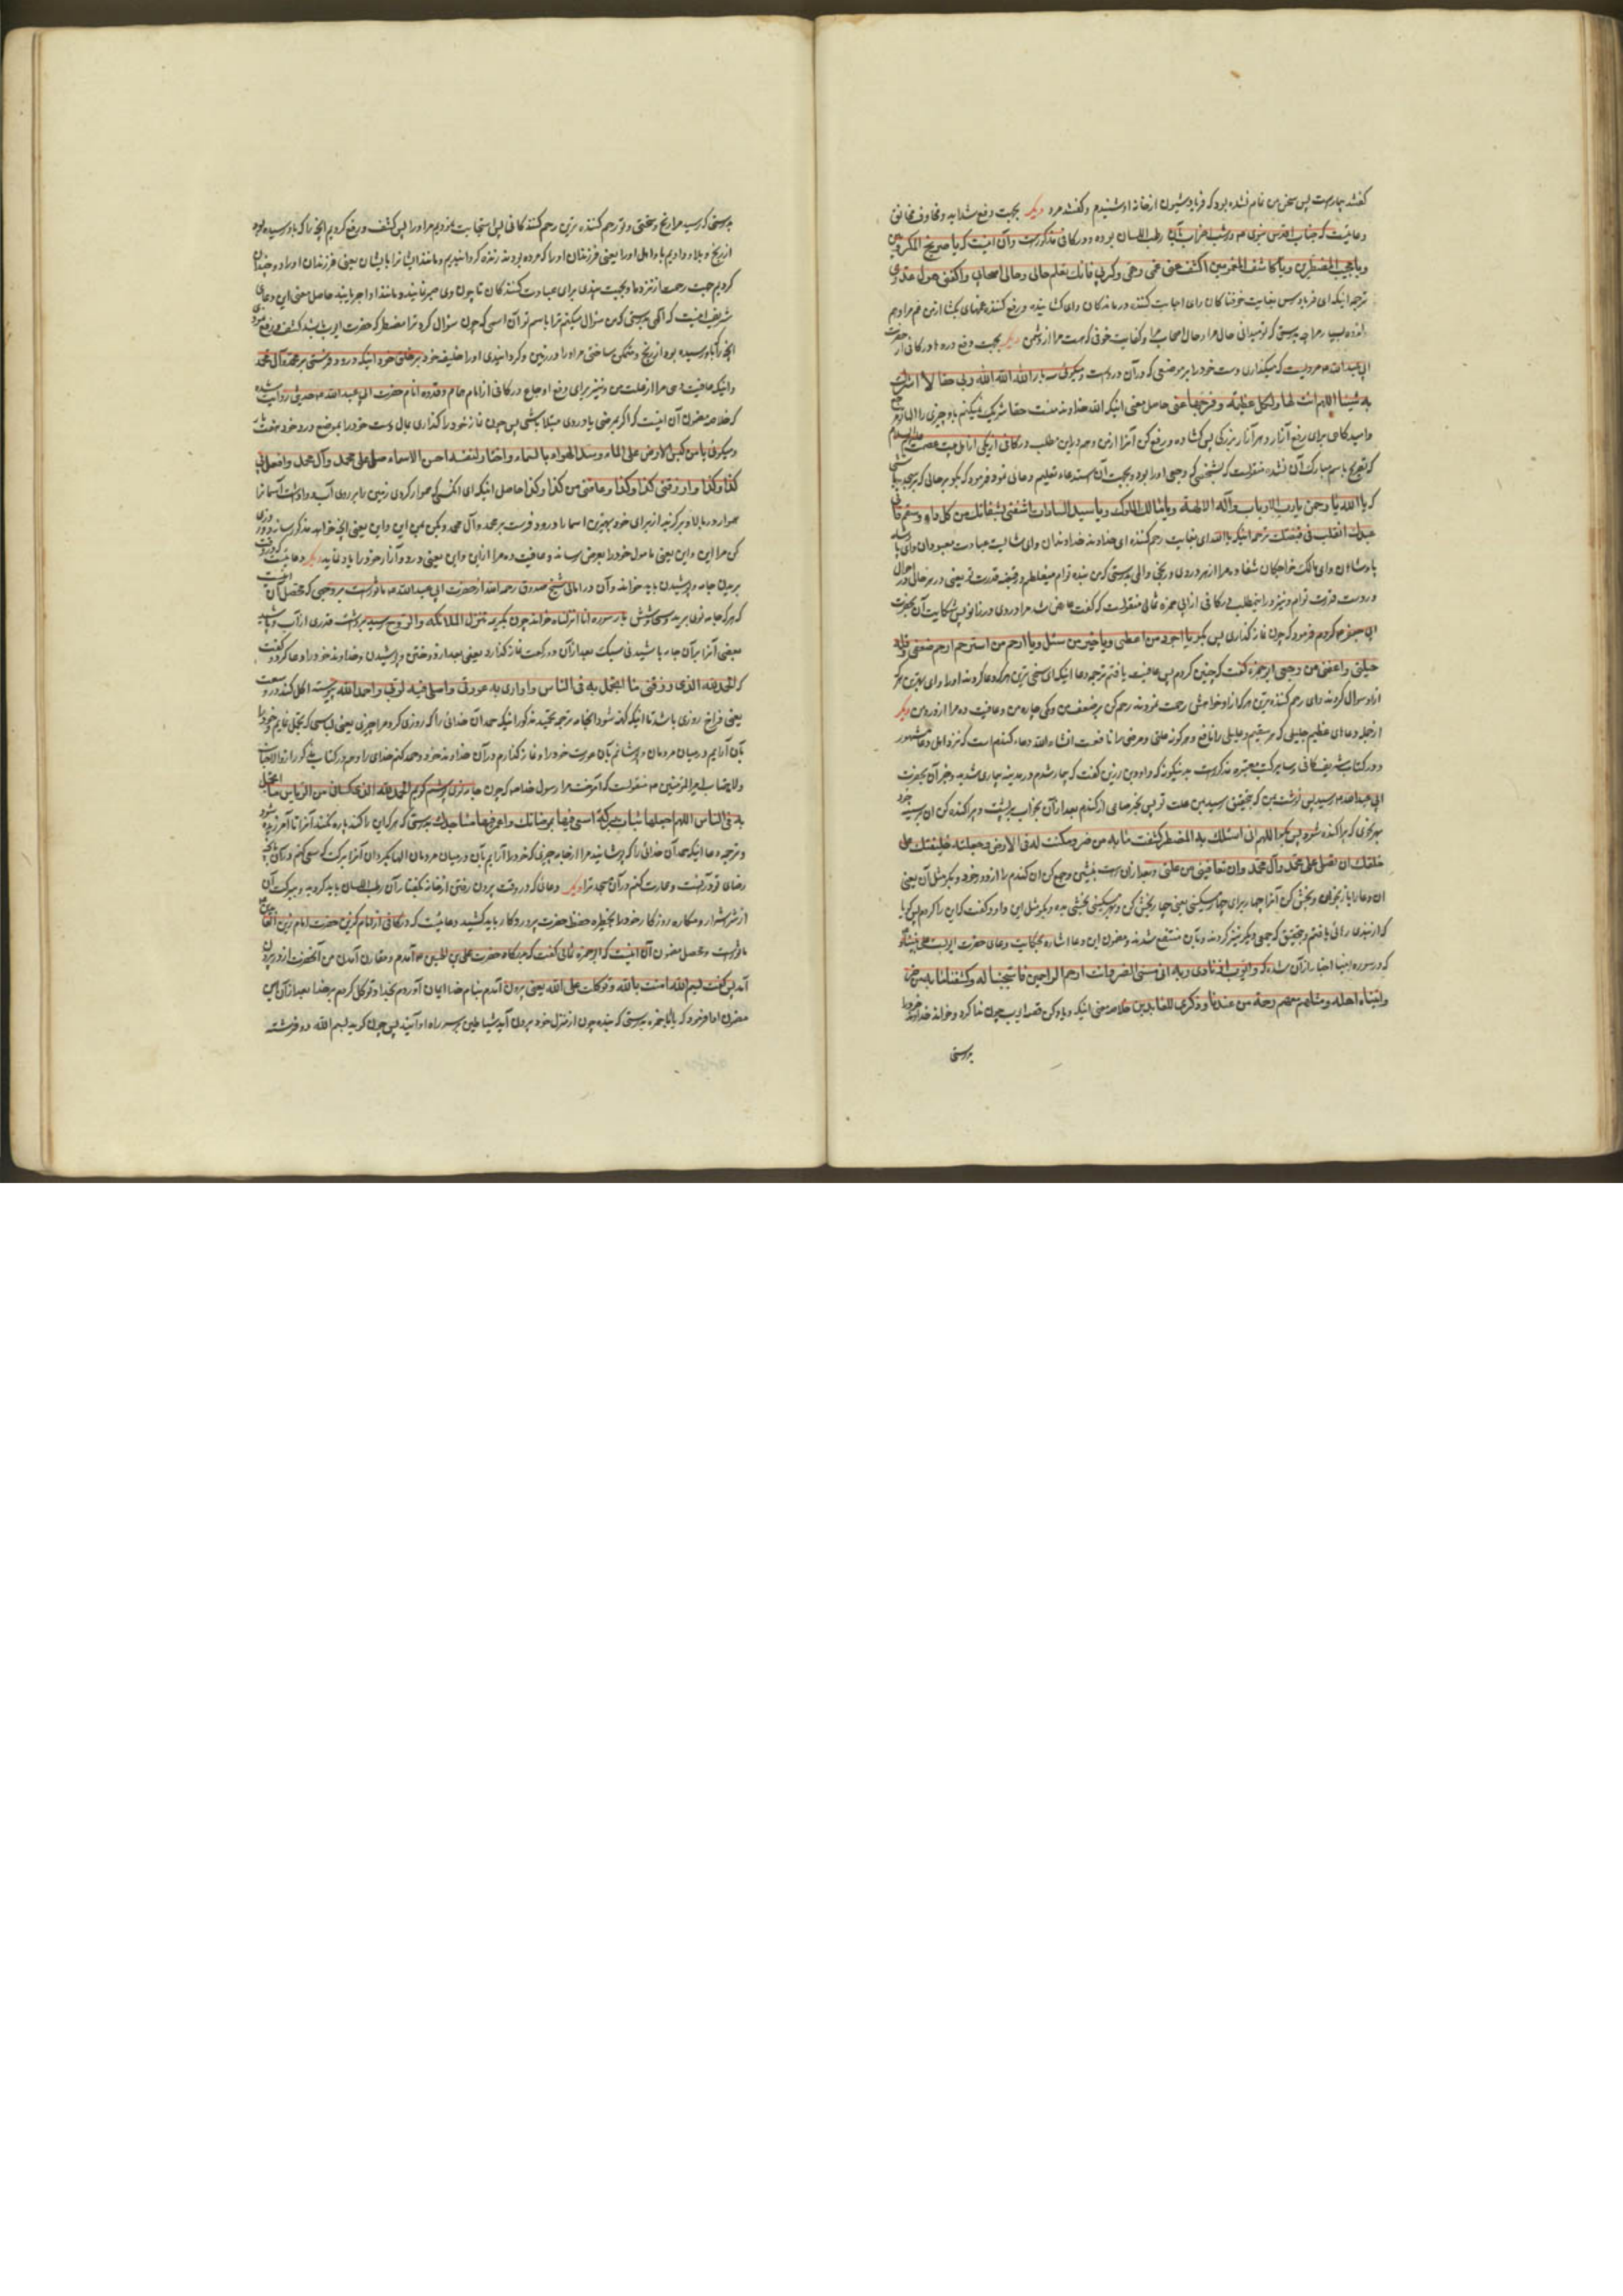 گفتند بیمارست پس سخن من تمام نشده بود که فریاد و شیون از خانه او شنیدم و گفتند مرد دیگر بجهت دفع شداید و مخاوف
دعائیست که جناب اقدس نبوی ص در شب احزاب بآن رطب اللسان بوده و در کافی مذکورست و آن اینست که یا صریخ المکروبین
ویا مجیب المضطرین ویا کاشف المغمومین اکشف عنی غمی وهمی وکربی فانك تعلم حالی وحال اصحابی واکفنی هول عدوی
ترجمه اینکه ای فریادرس بغایت و ای اجابت کننده درماندگان و ای گشاینده و رفع کننده غمهای بگشا از من غم مرا و هم
بدرستی که تو میدانی حال مرا و حال اصحاب مرا و کفایت خوفی که هست مرا از دشمن دیگر بجهت دفع دردها در کافی از حضرت
ابی عبد الله مرویست که میگذاری دست خود را بر موضعی که در آن درد است و میگوئی سه بار الله الله الله ربی حقا لا اشرك
به شیئا اللهم انت لها ولکل عظیمة ففرجها عنی حاصل معنی اینکه الله خداوند منست حقا شریک نمیکنم باو چیزی را
پس گشاده و رفع کن آنرا از من و هم در این مطلب در کافی از یکی از اهل بیت عصمت علیه السلام
که تصریح باسم مبارک آن نشده منقولست که بشخصی که وجعی او را بود و بجهت آن استدعاء تعلیم دعائی نمود فرمود که بگو
که یا الله یا رحمن یا رب الارباب واله الآلهة ویا ملك الملوك ویا سید السادات اشفنی بشفائك من کل داء وسقم فانی
عبدك اتقلب فی قبضتك ترجمه اینکه یا الله ای بغایت رحم کننده ای خداوند خداوندان و ای معبودان و ای پادشاه
پادشاهان و ای مالک خواجگان شفا ده مرا از هر دردی و رنجی بدرستی که من بنده توام میغلطم در قبضه قدرت تو یعنی در هر حال
در دست قدرت توام و نیز در این مطلب در کافی از ابی حمزه ثمالی منقولست که گفت عارض شد مرا دردی در زانو پس شکایت آن بحضرت
ابی جعفر ع کردم فرمود که چون نماز گذاری پس بگو یا اجود من اعطی ویا خیر من سئل ویا ارحم من استرحم ارحم ضعفی وقلة
حیلتی واعفنی من وجعی ابو حمزه گفت که چنین کردم پس عافیت یافتم ترجمه دعا اینکه ای سخی ترین
از او سؤال کردند و ای رحم کننده ترین هر که از او خواهش رحمت نمودند رحم کن بر ضعف من و کمی چاره من و عافیت ده مرا از درد من دیگر
از جمله دعاهای عظیم جلیلی که هر سقیم و علیلی را نافع و هر گونه علتی و مرضی را دافعست انشاء الله دعاء گندم است که
و در کتاب شریف کافی و سایر کتب معتبره مذکورست بدینگونه که داود بن زربی گفت که بیمار شدم در مدینه بیماری شدید و خبر آن بحضرت
ابی عبد الله رسید پس نوشت بمن که بتحقیق رسید بمن علت تو پس بخر صاعی از گندم بعد از آن بخواب بر پشت و پراکنده کن آن بر سینه خود
بهر نحوی که پراکنده شود پس بگو اللهم انی اسئلك باسمك الذی اذا سئلك به المضطر کشفت ما به من ضر ومکنت له فی الارض وجعلته خلیفتك علی
خلقك ان تصلی علی محمد وآل محمد وان تعافینی من علتی و بعد از آن راست بنشین و جمع کن آن گندم را از دور خود و بگو مثل آن یعنی
آن دعا را باز بخوان و بخش کن آنرا چهار بخش کن و بهر مسکینی بخشی بده و بگو مثل این داود گفت که این را کردم پس گویا
که از بندی رهائی یافتم و بتحقیق که جمعی دیگر نیز کردند و بآن منتفع شدند و مضمون این دعا اشاره بحکایت دعای حضرت ایوب
که در سوره انبیا اخبار از آن شده که وایوب اذ نادی ربه انی مسنی الضر وانت ارحم الراحمین فاستجبنا له وکشفنا ما به من ضر
وآتیناه اهله ومثلهم معهم رحمة من عندنا وذکری للعابدین خلاصه معنی اینکه و یاد کن قصه ایوب چون ندا کرد و خواند خداوند خود را
بدرستی
بدرستی که رسید مرا رنج و سختی و تو رحم کننده ترین رحم کنندگانی پس استجابت نمودیم مر او را پس کشف و رفع کردیم آنچه را که باو رسیده بود
از رنج و بلا و دادیم باو اهل او را یعنی فرزندان او را که مرده بودند زنده گردانیدیم و مانند ایشان را با ایشان یعنی فرزندان او را دو چندان
کردیم جهت رحمت از نزد ما و بجهت پندی برای عبادت کنندگان تا چون وی صبر نمایند و مانند او اجر یابند حاصل معنی این دعای
شریف اینست که الهی بدرستی که من سؤال میکنم ترا باسم تو آن اسمی که چون سؤال کرد ترا مضطر که حضرت ایوب باشد کشف و رفع نمودی
آنچه را باو رسیده بود از رنج و متمکن ساختی مر او را در زمین و گردانیدی او را خلیفه خود بر خلق خود اینکه درود فرستی بر محمد وآل محمد
و اینکه عافیت دهی مرا از علت من و نیز برای رفع اوجاع در کافی از امام همام و قدوه انام حضرت ابی عبد الله ع حدیثی روایت شده
که خلاصه مضمون آن اینست که اگر بمرضی یا دردی مبتلا باشی پس چون نماز خود را گذاری بمال دست خود را بموضع درد خود
و میگوئی یا من کبس الارض علی الماء وسد الهواء بالسماء واختار لنفسه احسن الاسماء صل علی محمد وآل محمد وافعل بی
کذا وکذا وارزقنی کذا وکذا وعافنی من کذا وکذا حاصل اینکه ای آنکسی که هموار کردی زمین را بر روی آب
برگزید از برای خود بهترین اسما را درود فرست بر محمد وآل محمد و بکن بمن این و این یعنی آنچه خواهد مذکور سازد و روزی
کن مرا این و این یعنی مأمول خود را بعرض رساند و عافیت ده مرا از این و این یعنی درد و آزار خود را یاد نماید دیگر دعائیست که در وقت
بریدن جامه و پوشیدن باید خواند و آن در امالی شیخ صدوق رحمه الله از حضرت ابی عبد الله مأثورست بر وجهی که محصل آن اینست
که هر که جامه نوی برید سی و شش بار سوره انا انزلناه خواند چون بکریمه تنزل الملائکة والروح رسید برداشت قدری از آب و پاشید
بعضی آنرا بر آن جامه پاشیدنی سبک بعد از آن دو رکعت نماز گذارد یعنی بعد از دوختن و پوشیدن و خداوند خود را دعا کرد و گفت
که الحمد لله الذی رزقنی ما اتجمل به فی الناس واواری به عورتی واصلی فیه لربی واحمد الله پیوسته اکل کند در وسعت
یعنی فراخ روزی باشد تا اینکه کهنه شود آنجامه ترجمه تحمید مذکور اینکه حمد آن خدائی را که روزی کرد مرا چیزی یعنی لباسی که تجمل نمایم
بآن در میان مردمان و بپوشانم بآن عورت خود را و نماز گذارم در آن خداوند خود و حمد کنم خدای را و هم در کتاب مذکور
امیر المؤمنین ع منقولست که آموخت مرا رسول خدا ص که چون جامه نوی پوشم گویم الحمد لله الذی کسانی من الریاش ما اتجمل
به فی الناس اللهم اجعلها ثیاب برکة اسعی فیها بمرضاتك واعمر فیها مساجدك بدرستی که هر که این را کند پاره نکند آنرا تا آمرزیده شود
و ترجمه دعا اینکه حمد آن خدائی را که پوشانید مرا از جامه چیزی که خود را آرایم بآن در میان مردمان الها بگردان آنرا برکت که سعی کنم در آن بجهت
رضای تو و عمارت کنم در آن مسجد ترا دیگر دعائی که در وقت بیرون رفتن از خانه بگفتار آن رطب اللسان باید گردید و ببرکت آن
از شر اشرار و مکاره روزگار خود را بحظیره حفظ حضرت پروردگار باید کشید دعائیست که در کافی از امام گزین حضرت امام زین العابدین ع
مأثورست و محصل مضمون آن اینست که ابو حمزه ثمالی گفت که بدرگاه حضرت علی بن الحسین ع آمدم و مقارن آمدن من آنحضرت از در بیرون
آمد پس گفت بسم الله آمنت بالله وتوکلت علی الله یعنی بیرون آمدم بنام خدا ایمان آوردم بخدا و توکل کردم بر خدا بعد از آن باین
مضمون ادا فرمود که یا ابا حمزه بدرستی که بنده چون از منزل خود بیرون آید شیاطین بر سر راه او آیند پس چون گوید بسم الله دو فرشته